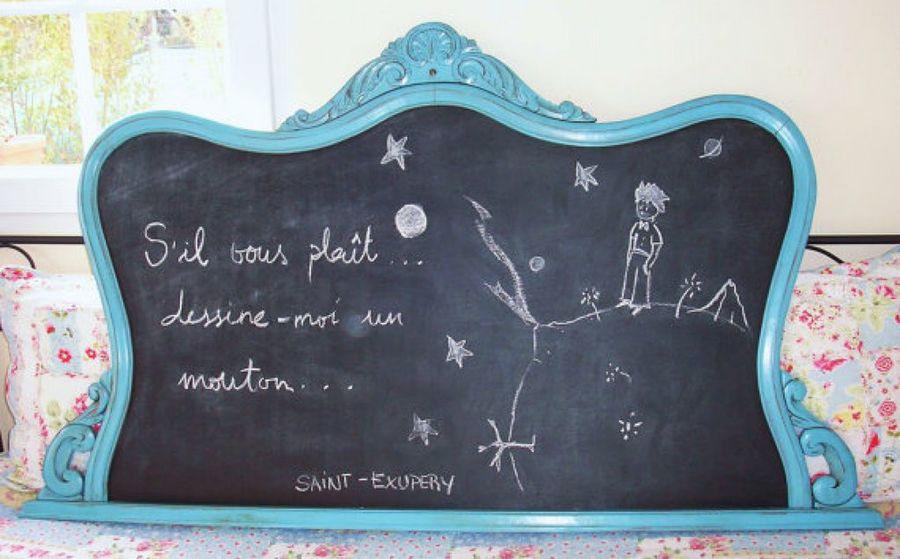 S'il vous plaît...
dessine-moi un
mouton...
SAINT-EXUPERY